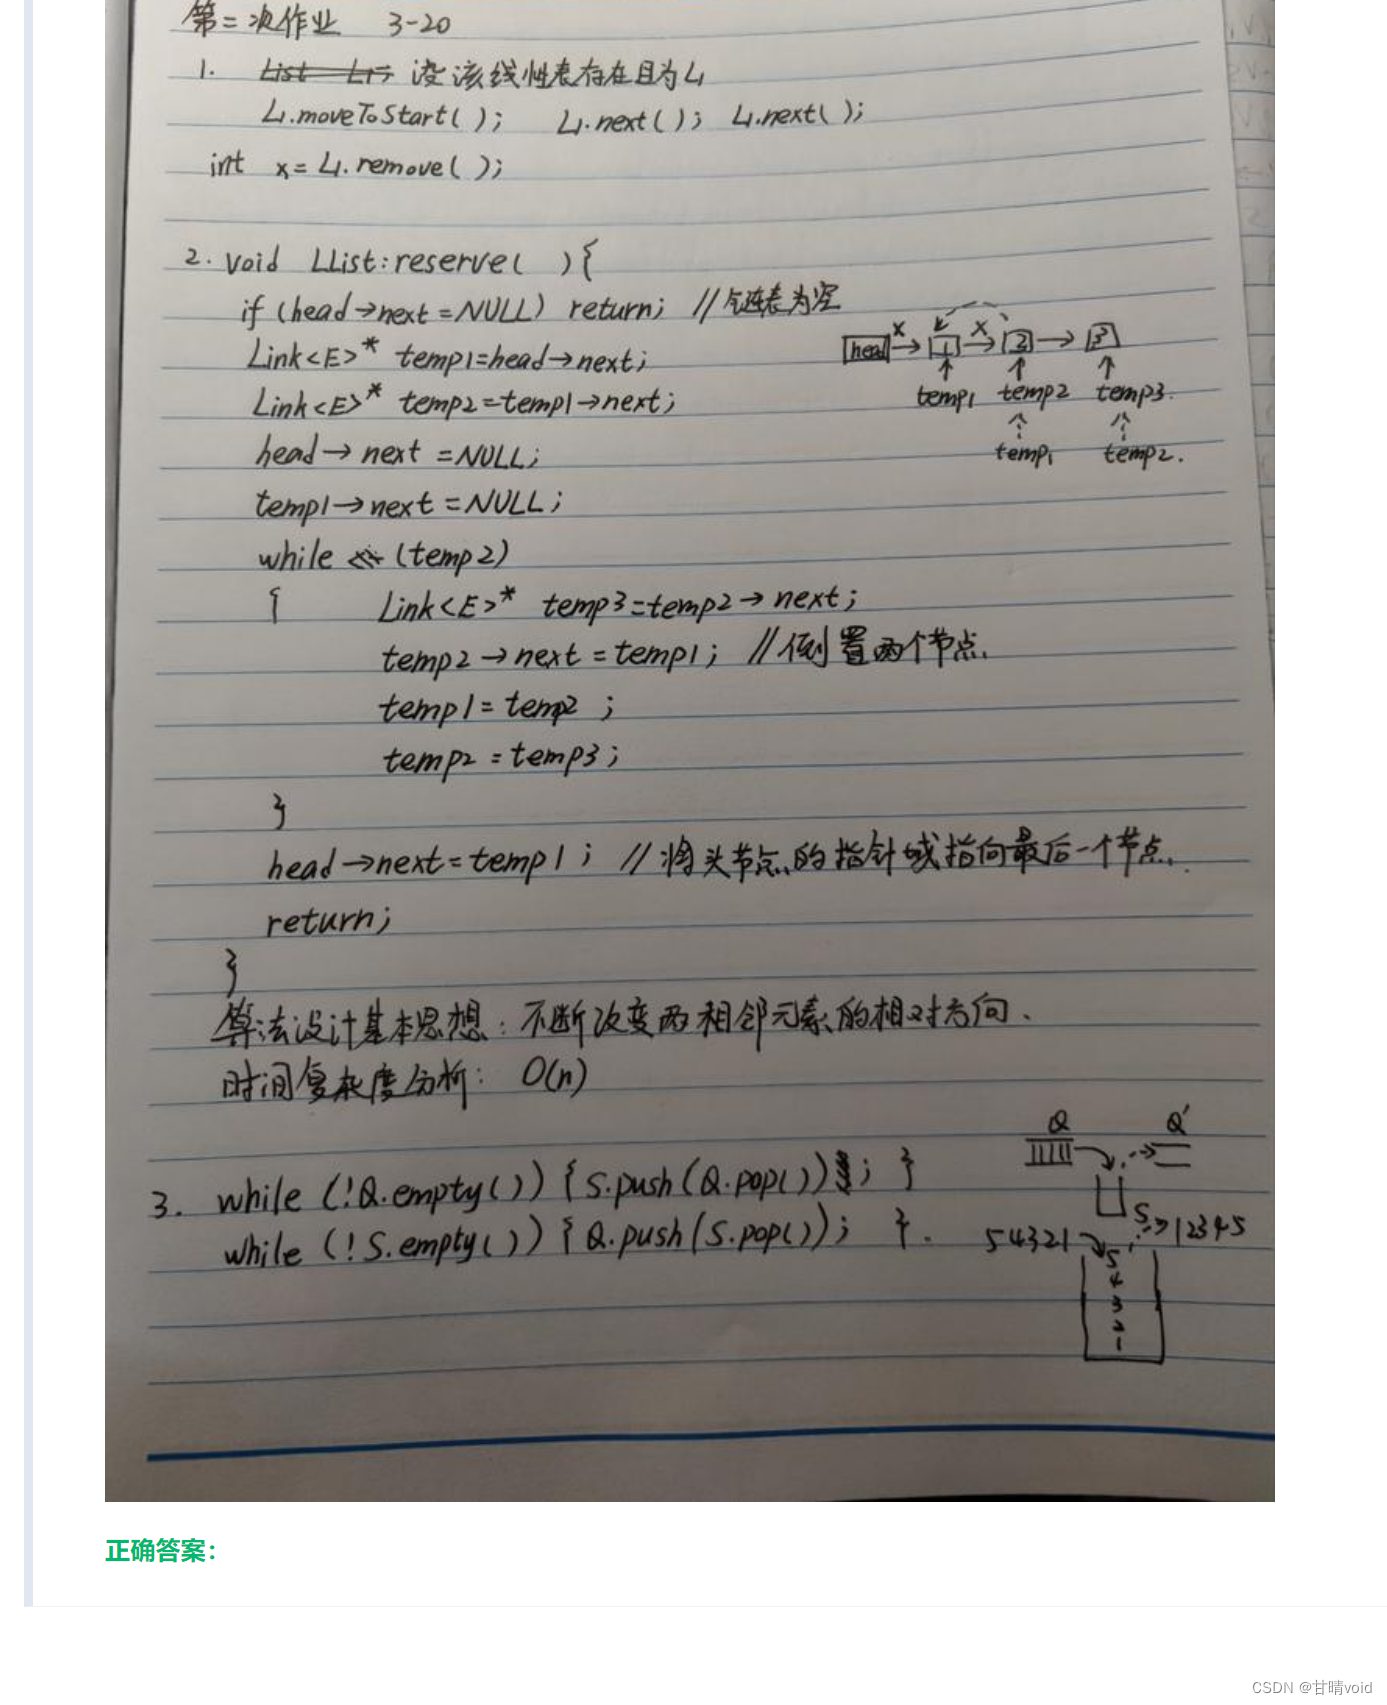 第二次作业 3-20
1. List L1; 设该线性表存在且为L1
L1.moveToStart( ); L1.next( ); L1.next( );
int x= L1.remove( );
2. void LList:reserve( ){
if (head→next =NULL) return; //链表为空
Link<E>* temp1=head→next;
Link<E>* temp2=temp1→next;
head→ next =NULL;
temp1→next =NULL;
while (temp2)
{ Link<E>* temp3=temp2→ next;
temp2→next =temp1; //倒置两个节点.
temp1= temp2 ;
temp2 = temp3;
}
head→next= temp1; //将头节点的指针域指向最后一个节点.
return;
}
head x 1 x 2 3
temp1 temp2 temp3.
temp1 temp2.
算法设计基本思想: 不断改变两相邻元素的相对方向.
时间复杂度分析: O(n)
3. while (!Q.empty()) { S.push(Q.pop()); }
while (!S.empty()) { Q.push(S.pop()); }.
Q Q'
S
54321 12345
5
4
3
2
1
正确答案：
CSDN @甘晴void